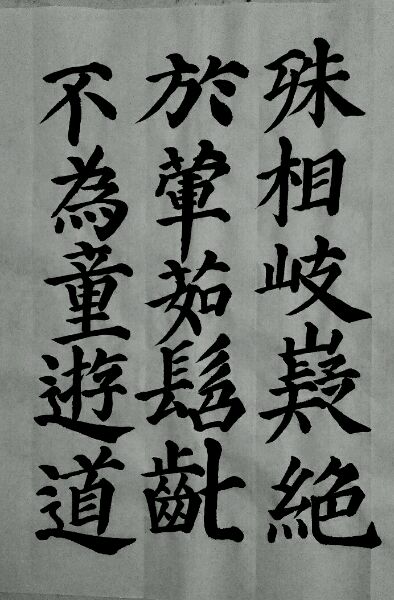 殊相岐嶷絕
於葷茹髫齔
不為童遊道